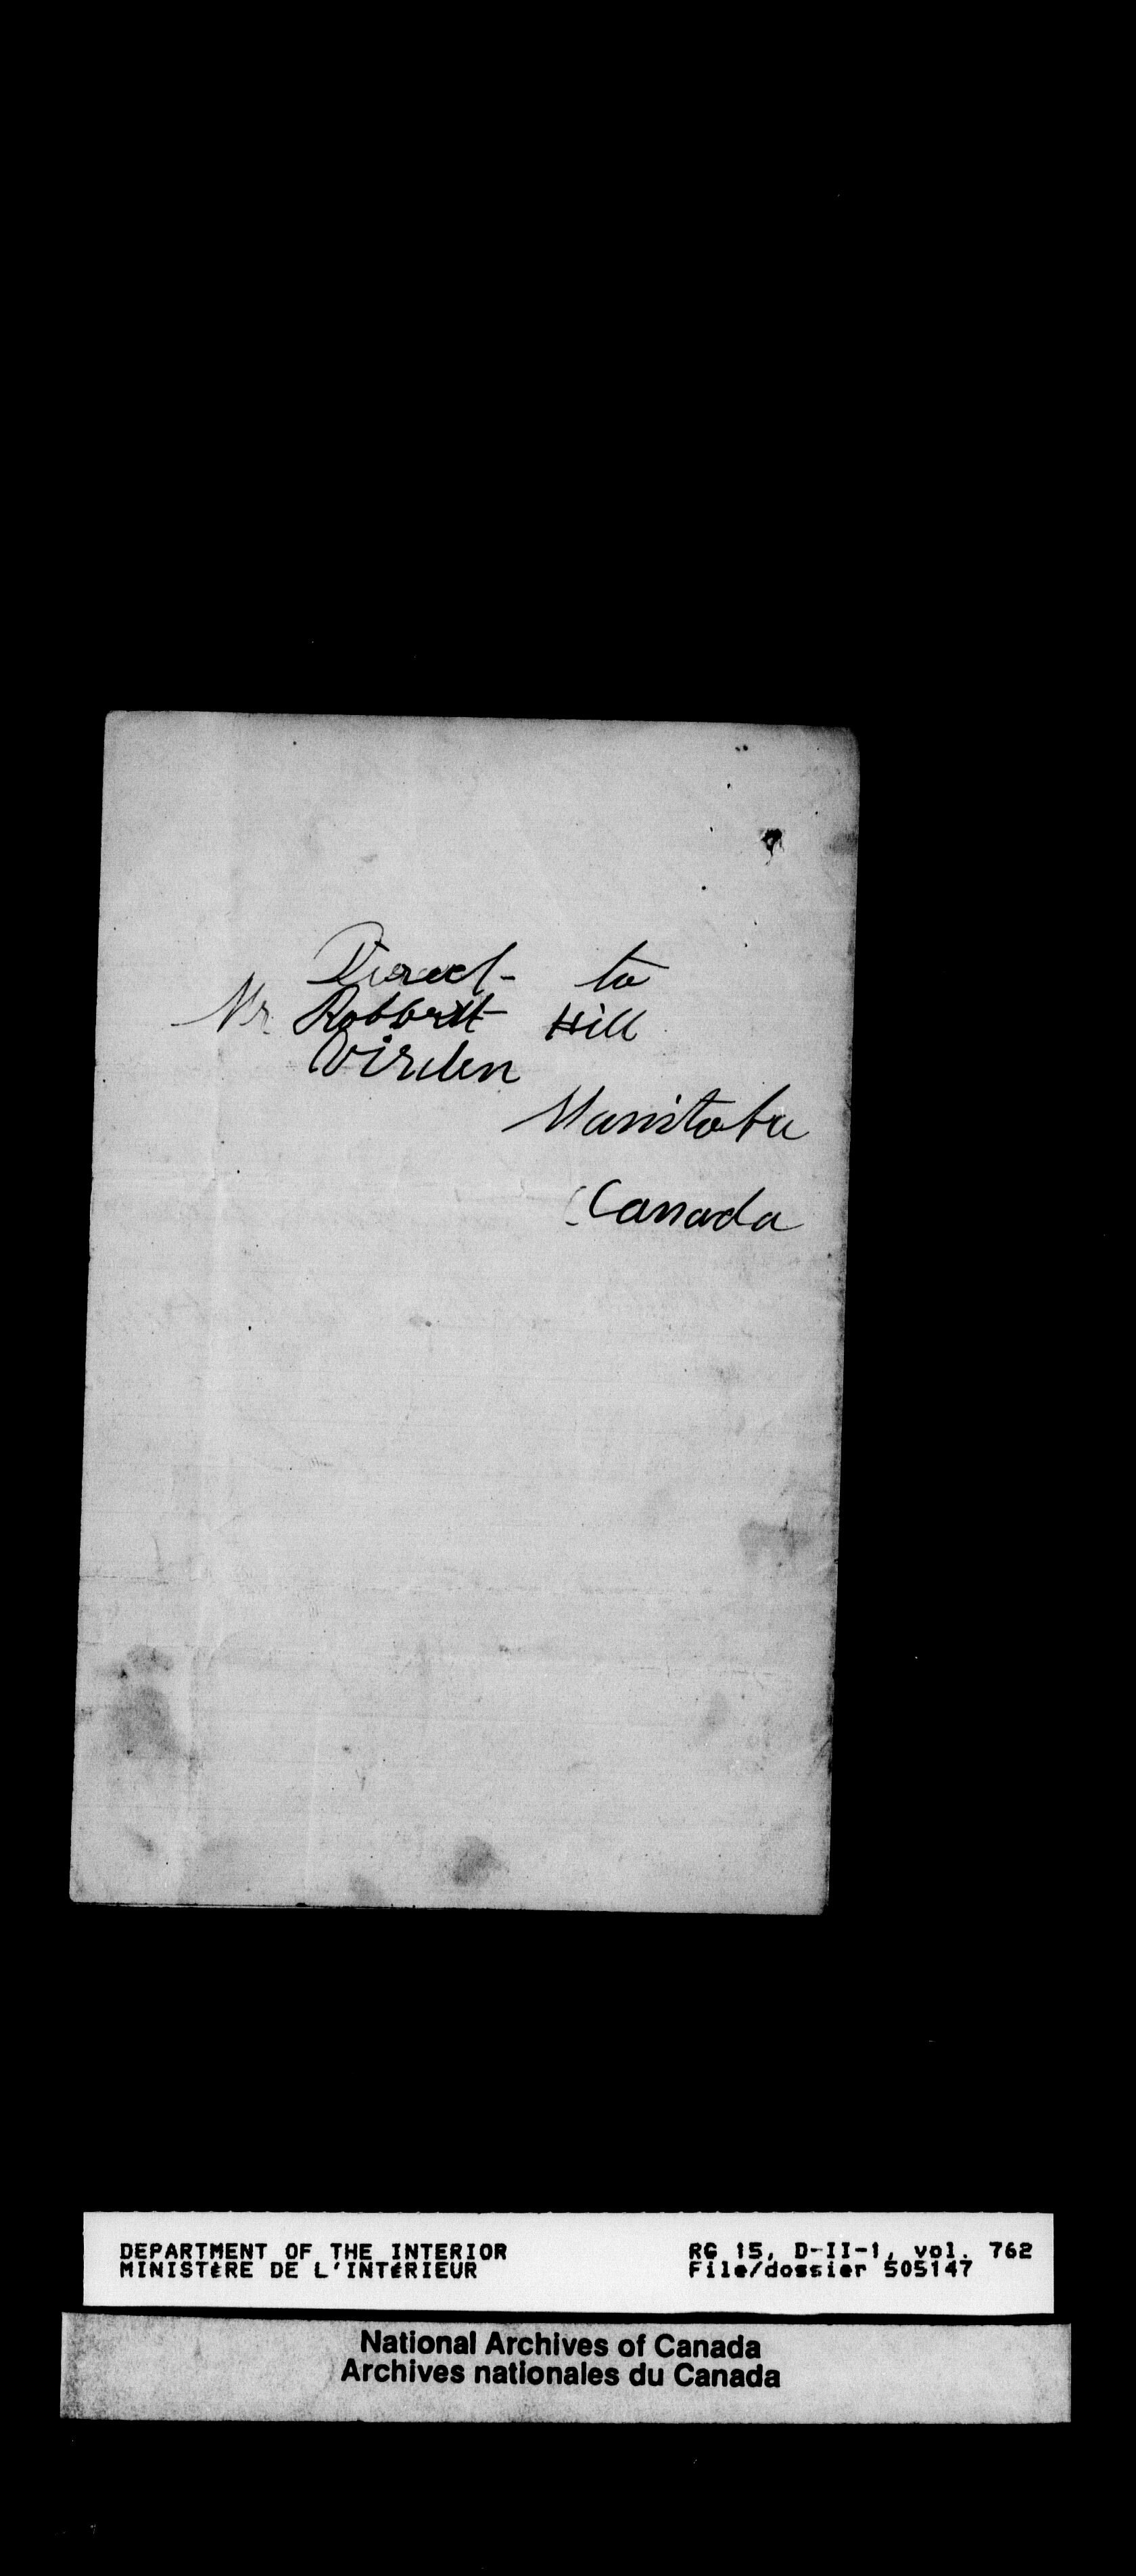 Direct - to
Mr Robbert Hill
Virden
Manitoba
Canada
DEPARTMENT OF THE INTERIOR
MINISTÈRE DE L'INTÉRIEUR
RG 15, D-II-1, vol. 762
File/dossier 505147
National Archives of Canada
Archives nationales du Canada